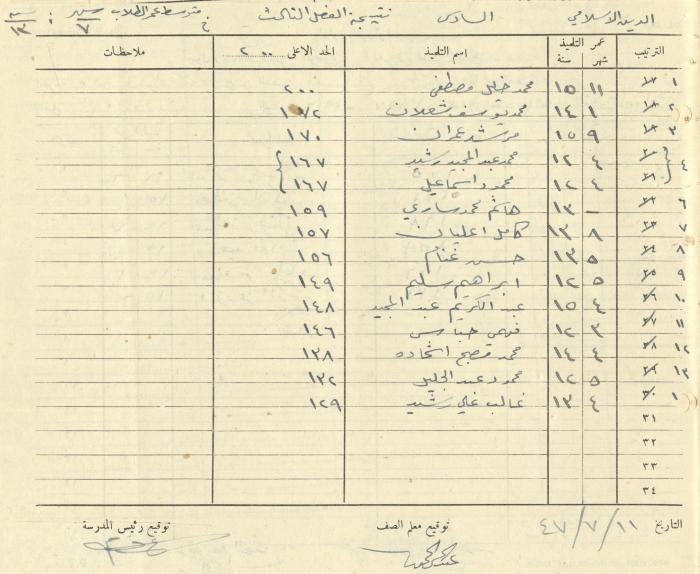 الدين الإسلامي السادس نتيجة الفصل الثالث متوسط عمر الطلاب : ٧ ١٣
الترتيب عمر التلميذ شهر سنة اسم التلميذ الحد الاعلى ٢٠٠ ملاحظات
١ ١١ ١٥ محمد خليل مصطفى ٢٠٠
٢ ١ ١٤ محمد يوسف شعلان ١٧٢
٣ ٩ ١٥ مرشد عمران ١٧٠
٤ ٤ ١٢ محمد عبد المجيد رشيد ١٦٧
٤ ١٢ محمود اسماعيل ١٦٧
٦ - ١٣ هاشم محمد ساري ١٥٩
٧ ٨ ١٣ كامل اعليان ١٥٧
٨ ٥ ١٣ حسن غنام ١٥٦
٩ ٥ ١٢ ابراهيم سليم ١٤٩
١٠ ٤ ١٥ عبد الكريم عبد المجيد ١٤٨
١١ ٣ ١٢ فهمي عباس ١٤٦
١٢ ٤ ١٤ محمد اشحاده ١٣٨
١٣ ٥ ١٢ محمود عبد الجليل ١٣٢
١ ٤ ١٣ غالب علي رشيد ١٢٩
٣١
٣٢
٣٣
٣٤
التاريخ ١١/٧/٤٧ توقيع معلم الصف توقيع رئيس المدرسة